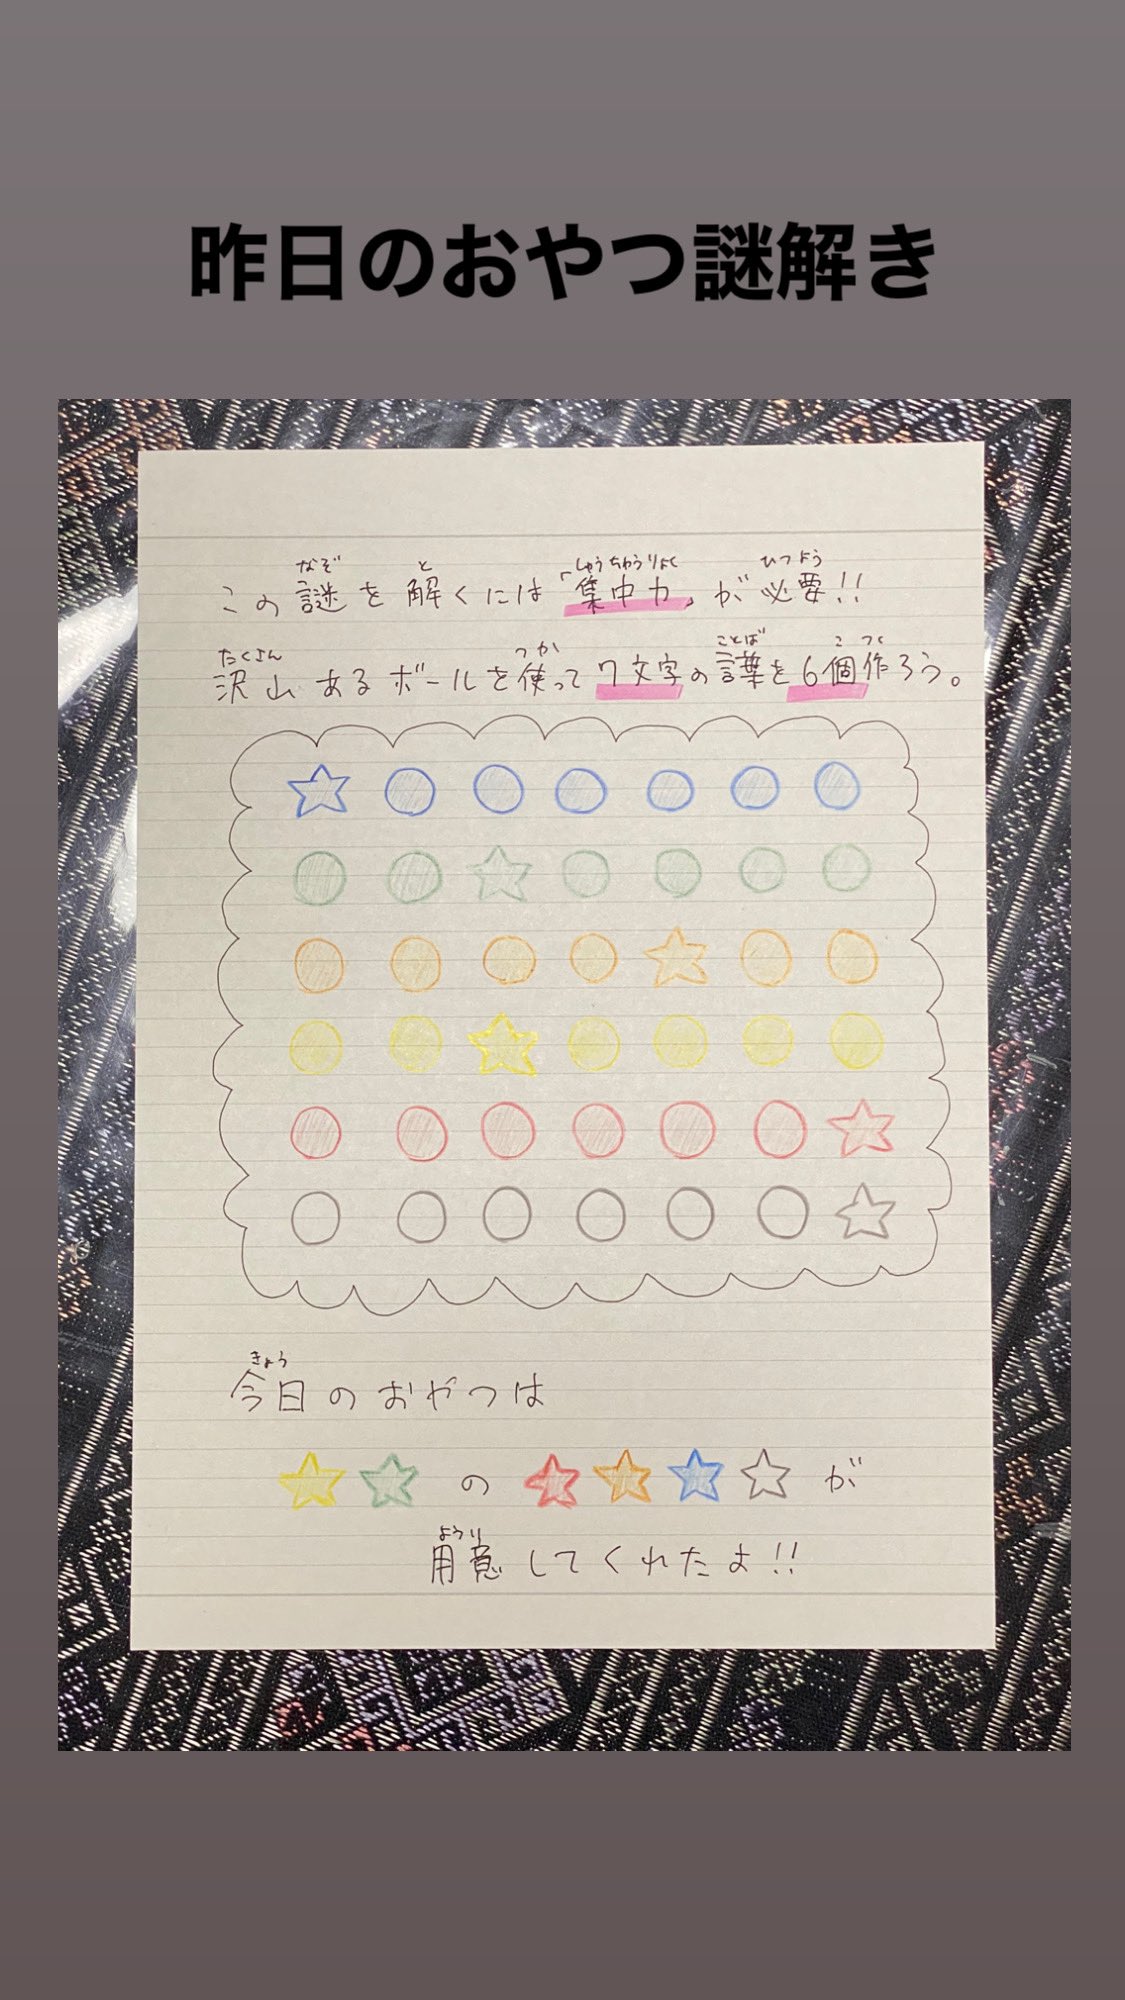 昨日のおやつ謎解き
なぞ と しゅうちゅうりょく ひつよう
この謎を解くには「集中力」が必要!!
たくさん つか ことば こ つく
沢山あるボールを使って7文字の言葉を6個作ろう。
きょう
今日のおやつは
の が
ようい
用意してくれたよ!!